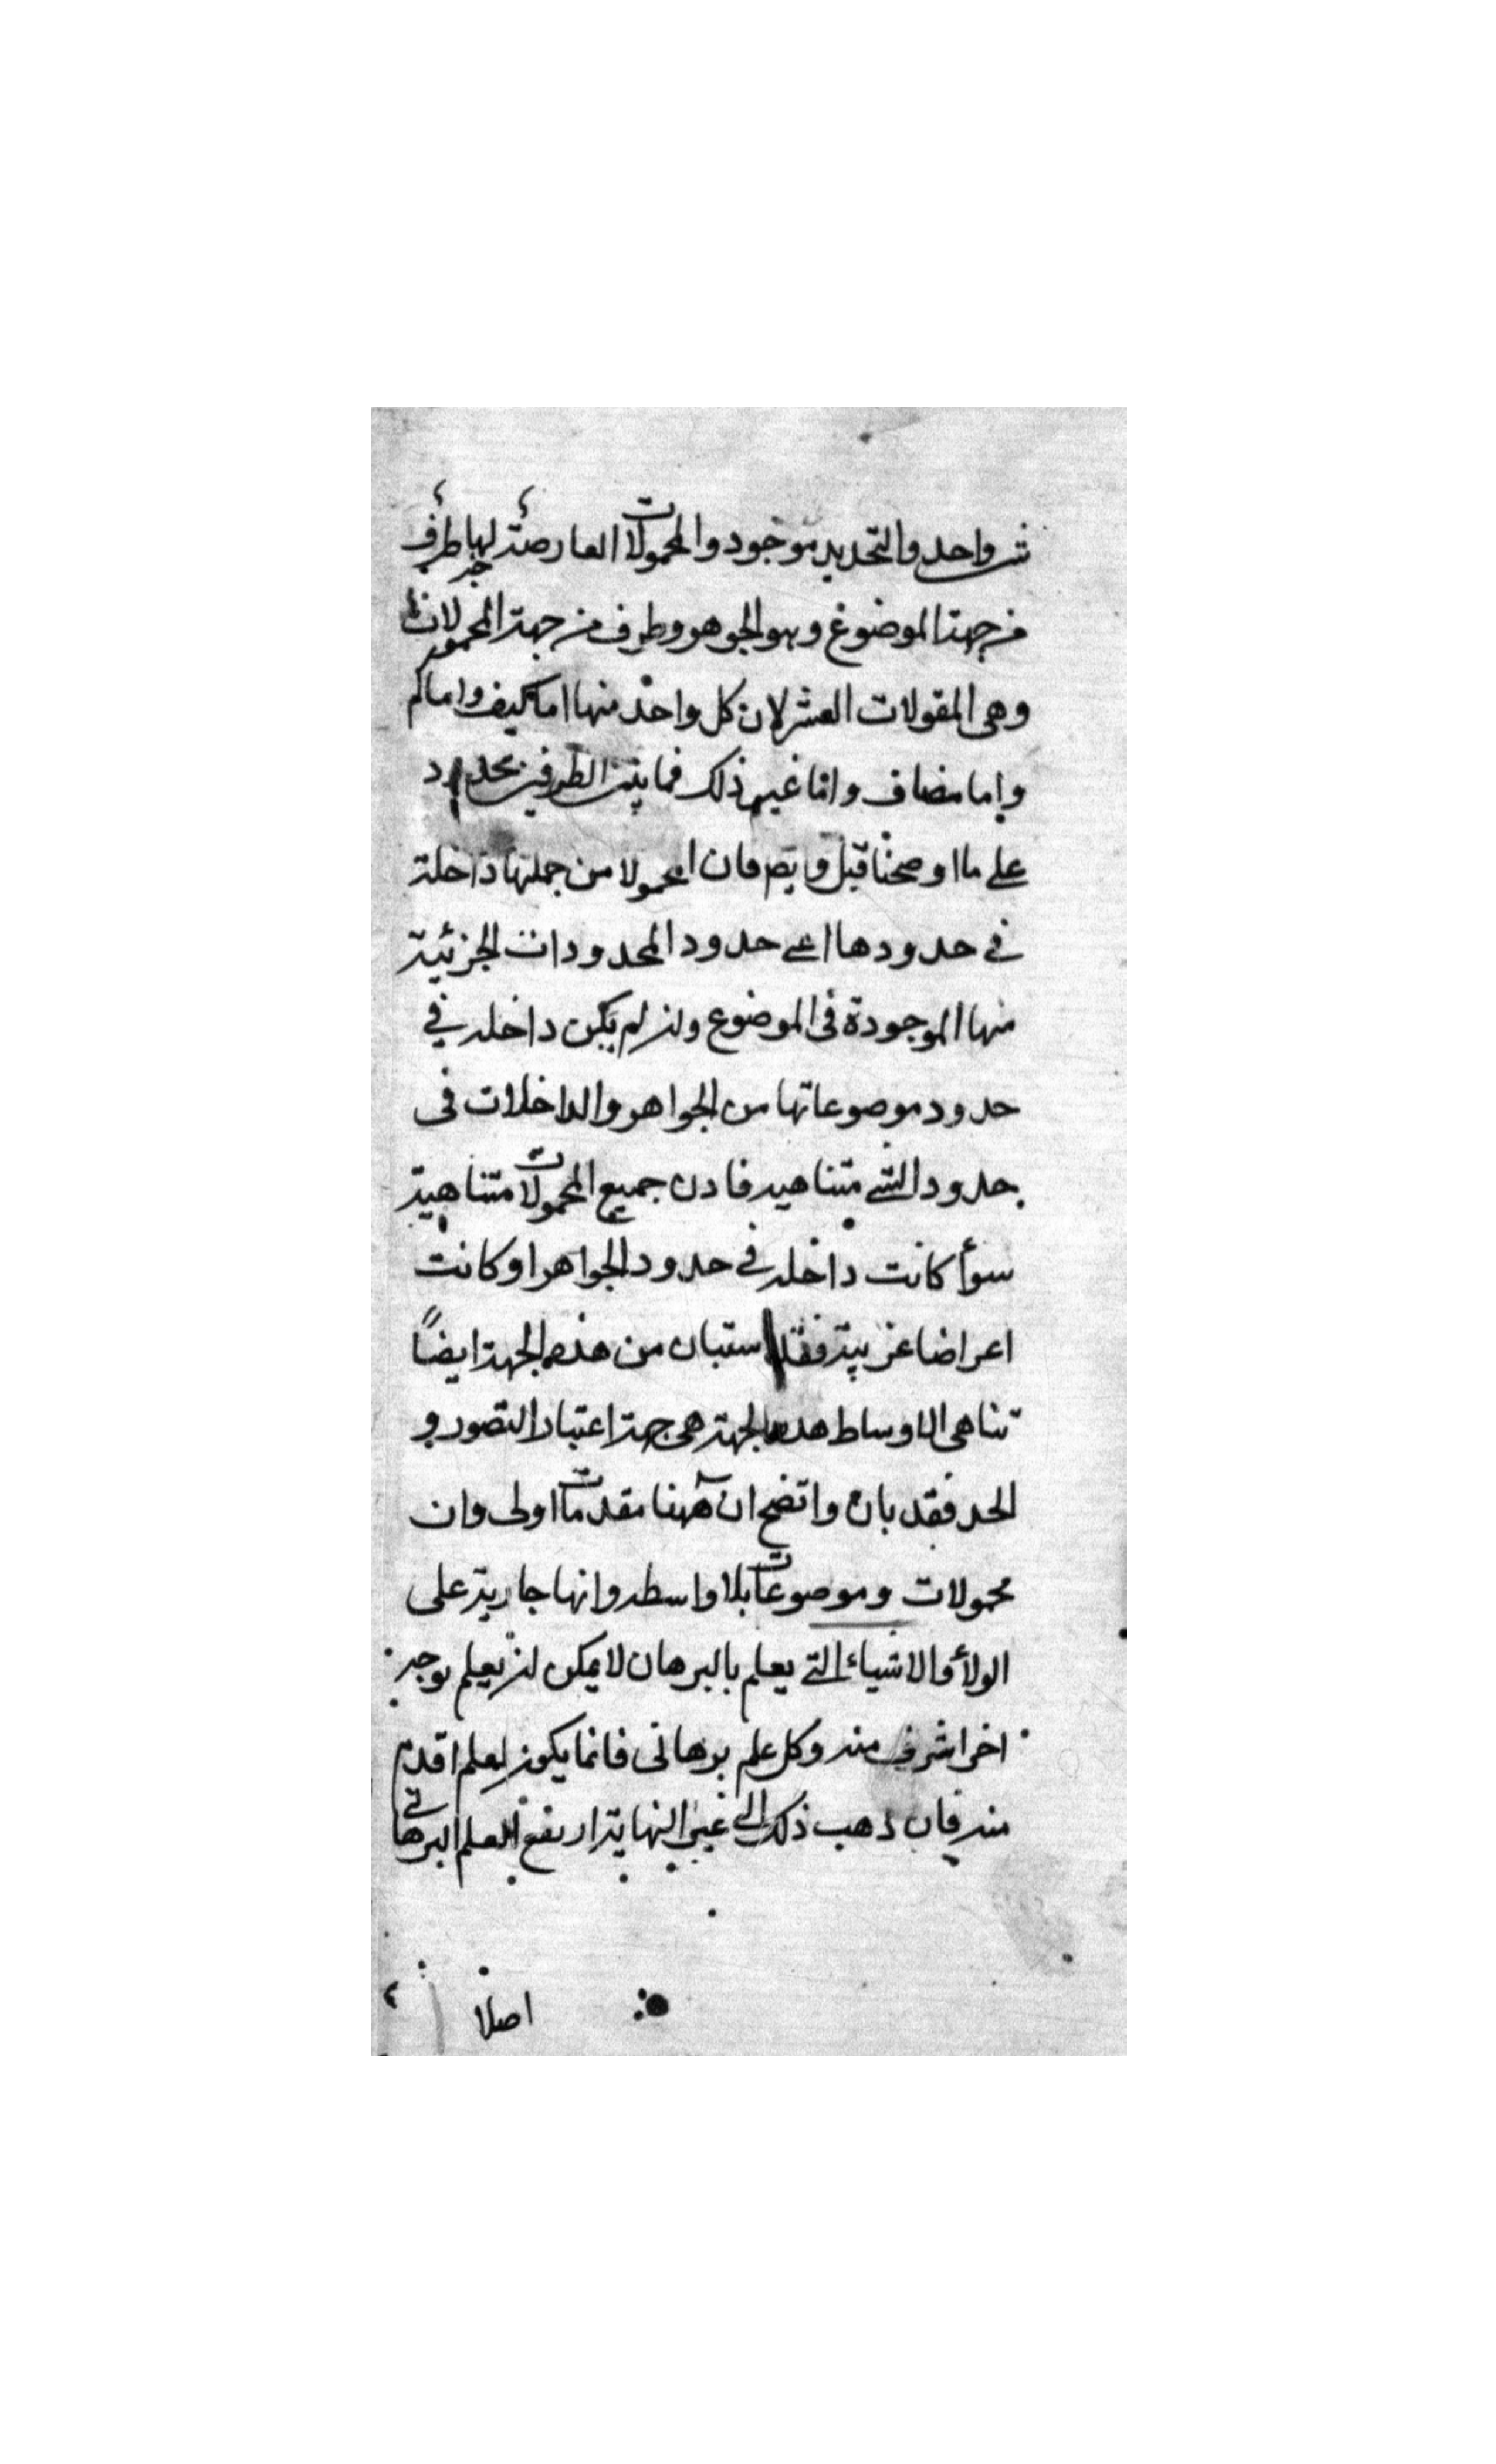 شی واحد والتحدید موجود والمحمولات العارضة لها طرف
من جهة الموضوع وهو الجوهر وطرف من جهة المحمولات
وهی المقولات العشر لان کل واحد منها اما کیف واما کم
واما مضاف واما غیر ذلک فما بین الطرفین محدود
علی ما اوضحنا قبل وایضا فان المحمولا من جملتها داخلة
فی حدودها اعنی حدود المحدودات الجزئیة
منها الموجودة فی الموضوع وان لم یکن داخله فی
حدود موضوعاتها من الجواهر والداخلات فی
حدود الشی متناهیه فاذن جمیع المحمولات متناهیة
سوأ کانت داخله فی حدود الجواهر او کانت
اعراضا غریبة فقد استبان من هذه الجهة ایضاً
تناهی الاوساط هذه الجهة هی جهة اعتبار التصور و
الحد فقد بان واتضح ان ههنا مقدمات اولی وان
محمولات وموضوعات بلا واسطه وانها جاریة علی
الولأ والاشیاء التی یعلم بالبرهان لا یمکن ان یعلم بوجه
اخر اشرف منه وکل علم برهانی فانما یکون لعلم اقدم
منه فان ذهب ذلک الی غیر النهایة ارتفع العلم البرهانی
اصلا